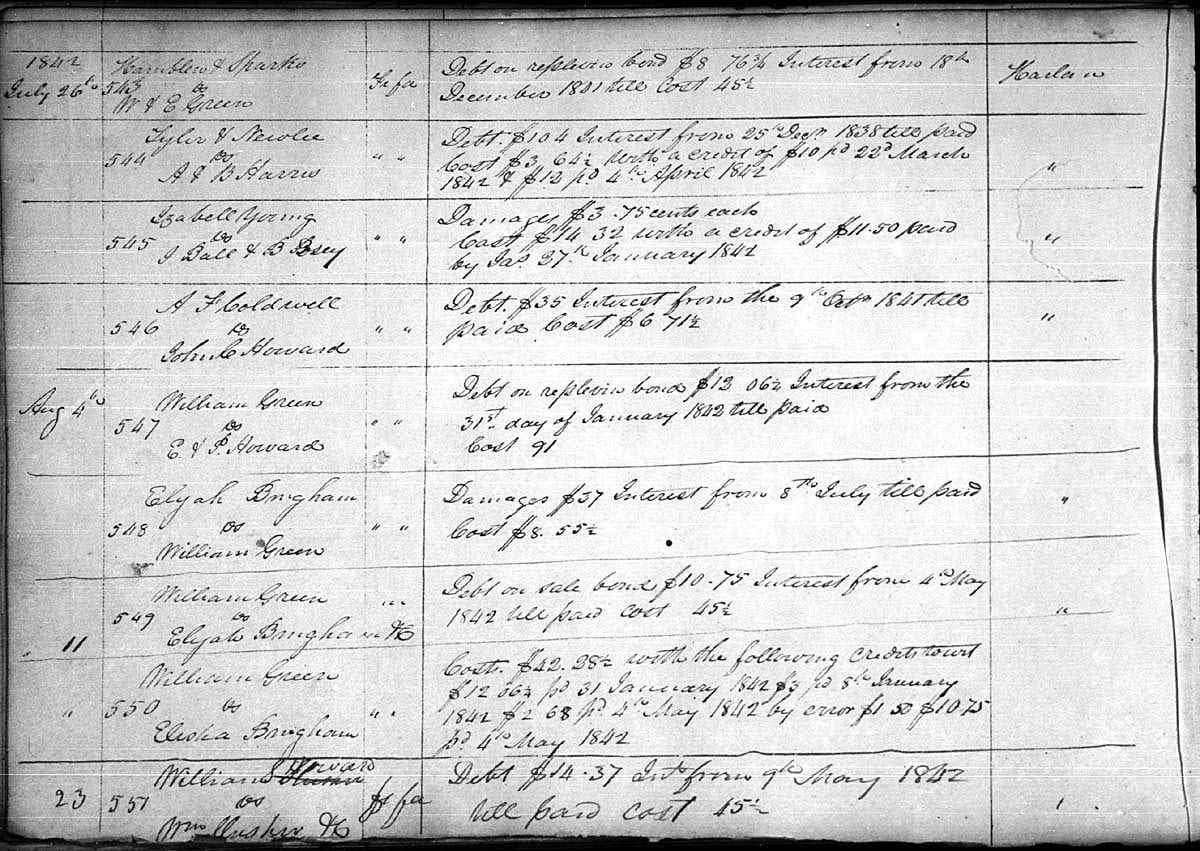 1842 Hamblen & Sparks Debt on replevin bond $8 76¾ Interest from 18th Harlan
July 26th 543 vs Fi fa December 1841 till Cost 45½
W & E Green
Tyler & Newlee Debt. $104 Interest from 25th Decr. 1838 till paid
544 vs " " Cost $3. 64½ with a credit of $10 pd 22d March "
A & B Harris 1842 & $12 pd. 4th April 1842
Izabell Young Damages $3.75 cents each
545 vs " " Cost $14 32 with a credit of $11.50 paid "
J Ball & B Posey by Jas. 27th January 1842
A F Coldwell Debt. $35 Interest from the 9th Octr 1841 till
546 vs " " paid Cost $6 71½ "
John C Howard
Aug 4th William Green Debt on replevin bond $13 06½ Interest from the
547 vs " " 31st. day of January 1842 till paid
E & P. Howard Cost 91
Elijah Bringham Damages $37 Interest from 8th July till paid "
548 vs " " Cost $8. 55½
William Green
William Green " " Debt on sale bond $10.75 Interest from 4th May
549 vs 1842 till paid cost 45½ "
" 11 Elijah Bringham &C
William Green Costs. $42. 28½ with the following credits towit
" 550 vs " " $12 06½ pd 31 January 1842 $3 pd 8th January
1842 $2 68 pd. 4th May 1842 by error $1 50 $10 75
Elisha Bringham pd 4th May 1842
William Howard Debt $14.37 Intt from 9th May 1842
23 551 vs fi fa till paid cost 45½
Wm &C